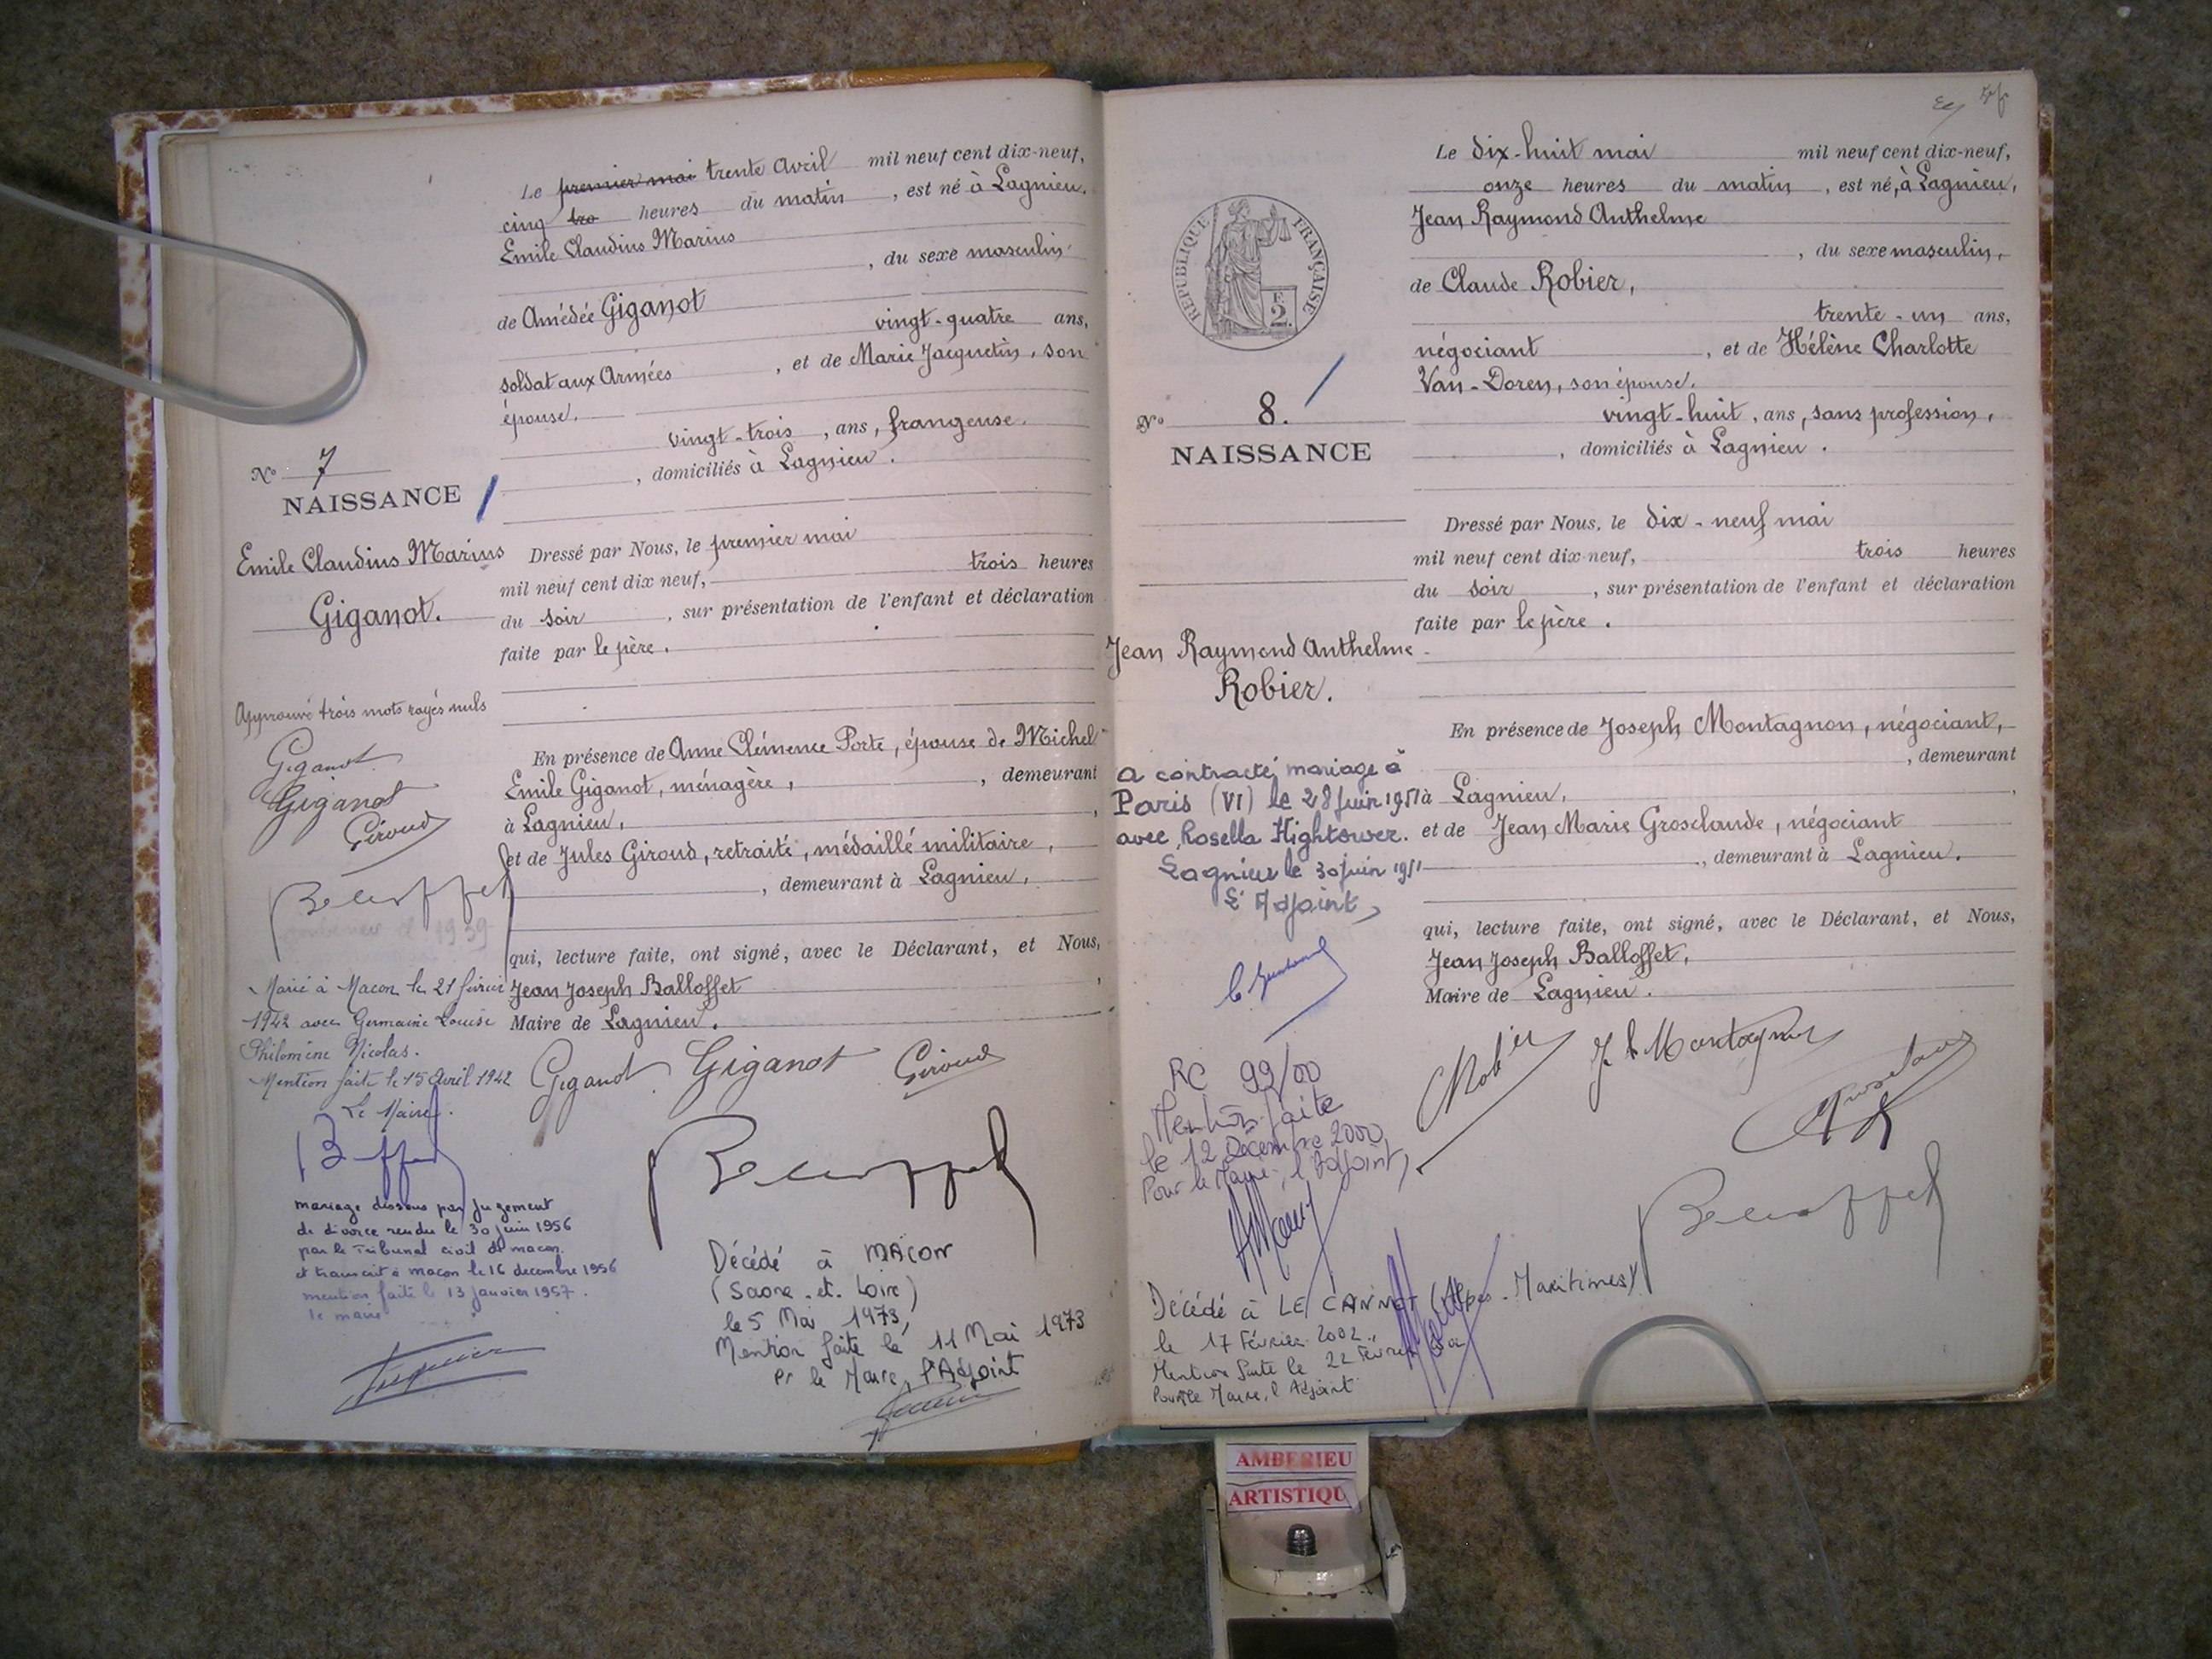 Le premier mai trente Avril mil neuf cent dix-neuf,
cinq tro heures du matin, est né à Lagnieu,
Emile Claudius Marius
, du sexe masculin
de Amédée Giganot
vingt-quatre ans,
soldat aux Armées, et de Marie Jacquetin, son
épouse.
vingt-trois, ans, frangeuse.
, domiciliés à Lagnieu.
No 7
NAISSANCE
Emile Claudius Marius
Giganot.
Dressé par Nous, le premier mai
mil neuf cent dix neuf, trois heures
du soir, sur présentation de l'enfant et déclaration
faite par le père.
Approuvé trois mots rayés nuls
Giganot
Giganot
Giroud
En présence de Anne Clémence Porte, épouse de Michel
Emile Giganot, ménagère, , demeurant
à Lagnieu,
et de Jules Giroud, retraité, médaillé militaire,
, demeurant à Lagnieu,
qui, lecture faite, ont signé, avec le Déclarant, et Nous,
Jean Joseph Balloffet
Maire de Lagnieu.
1939
Marié à Macon le 21 février
1942 avec Germaine Louise
Philomène Nicolas.
Mention faite le 15 Avril 1942
Le Maire.
Giganot Giganot Giroud
mariage dissous par jugement
de divorce rendu le 30 juin 1956
par le Tribunal civil de macon
et transcrit à macon le 16 decembre 1956
mention faite le 13 janvier 1957.
le maire
Décédé à MACON
(Saone-et-Loire)
le 5 Mai 1973,
Mention faite le 11 Mai 1973
Pr le Maire, l'Adjoint
Le dix-huit mai mil neuf cent dix-neuf,
onze heures du matin, est né, à Lagnieu,
Jean Raymond Anthelme
, du sexe masculin,
de Claude Robier,
trente-un ans,
négociant, et de Hélène Charlotte
Van-Doren, son épouse.
vingt-huit, ans, sans profession,
, domiciliés à Lagnieu.
REPUBLIQUE FRANÇAISE
F.
2.
No 8.
NAISSANCE
Jean Raymond Anthelme
Robier.
Dressé par Nous, le dix-neuf mai
mil neuf cent dix-neuf, trois heures
du soir, sur présentation de l'enfant et déclaration
faite par le père.
En présence de Joseph Montagnon, négociant,
, demeurant
à Lagnieu,
et de Jean Marie Grosclaude, négociant
, demeurant à Lagnieu.
qui, lecture faite, ont signé, avec le Déclarant, et Nous,
Jean Joseph Balloffet,
Maire de Lagnieu.
a contracté mariage à
Paris (VI) le 28 juin 1951
avec Rosella Hightower.
Lagnieu le 30 juin 1951
L'Adjoint,
CRobier J Montagnon
RC 99/00
Mention faite
le 12 Décembre 2000
Pour le Maire, l'Adjoint,
Décédé à LE CANNET (Alpes-Maritimes)
le 17 Février 2002.
Mention faite le 22 Février
Pour le Maire, l'Adjoint
AMBERIEU
ARTISTIQU